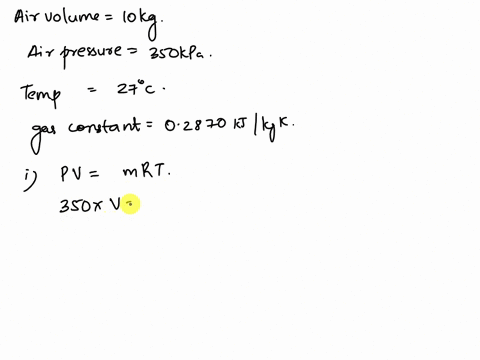 Air volume = 10kg.
Air pressure = 350kPa.
Temp = 27°c.
gas constant = 0.2870 KJ/kgK.
i) PV = mRT.
350x V =